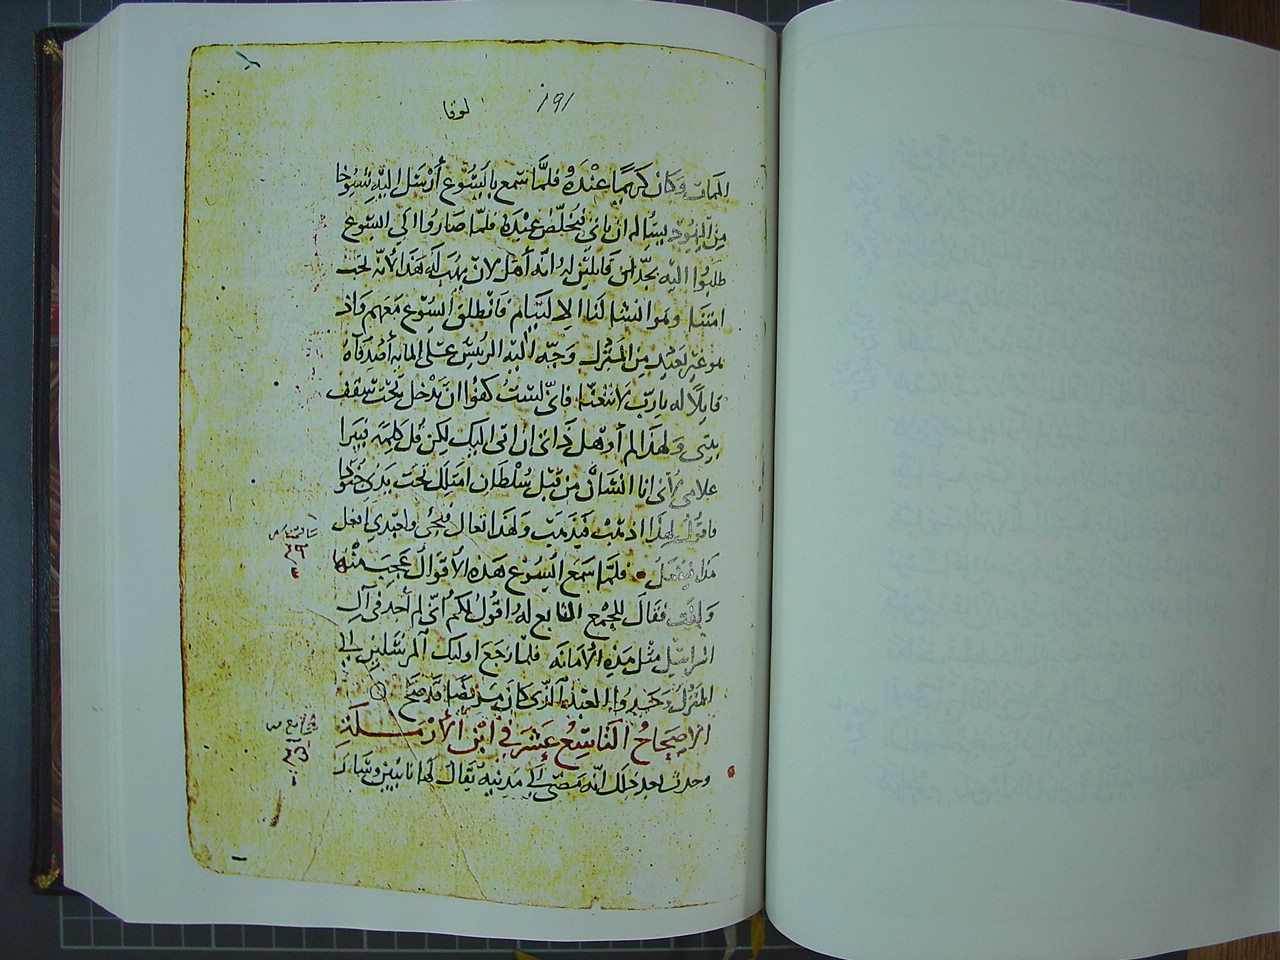 191 لوقا
الممات وكان كريمًا عنده فلمَّا سمع باليسوع أرسل اليه شيوخا
من اليهود يسُاله ان ياتي فيُخلّص عبْدهُ فلمّا صاروا الي اليسوع
طلبُوا اليه بجدّ قايلين لهُ انّه أهل لان يهُب له هَذا لأنّه يحب
امتنا وهو انشا لنا الالتيام فانطلق اليسُوع معَهم واذ
هو غير بَعيْد من المنزل وجّه اليْه الرئيس علي المايه أصْدقآهُ
قايلاً له يا ربّ لا تتعنا فانّي لسْتُ كفوُا ان تدْخل تحْت سقف
بيتي ولهَذا لم أوهل ذاتي ان اتي اليك لكن قُل كلمةً فيبرا
غلامي لأني انا انسَان من قبْل سُلْطان امتلك تحت يدي جنودًا
فاقولُ لهذا اذهبْ فيَذهبْ ولهذا تعال فيجي ولعبْدي افعل
هذا فيفعلُ فلمّا سَمع اليسُوع هَذه الأقوال عجبَ منْها
والتفت فقالَ للجمْع التابع لهُ اقولُ لكم انّي لم أجد في آل
اسراييل مثل هَذه الأمانه فلمّا رجَعَ اوليك المرسَلين الي
المنزل وَجَدوا العبْد الّذي كان مريضًا قد صَحّ
الاصحاحُ التّاسِعُ عشَر في ابْن الأرْملة
وحدث بعد ذلك انّه مَضي الي مدينه يُقال لها نايين وسَار